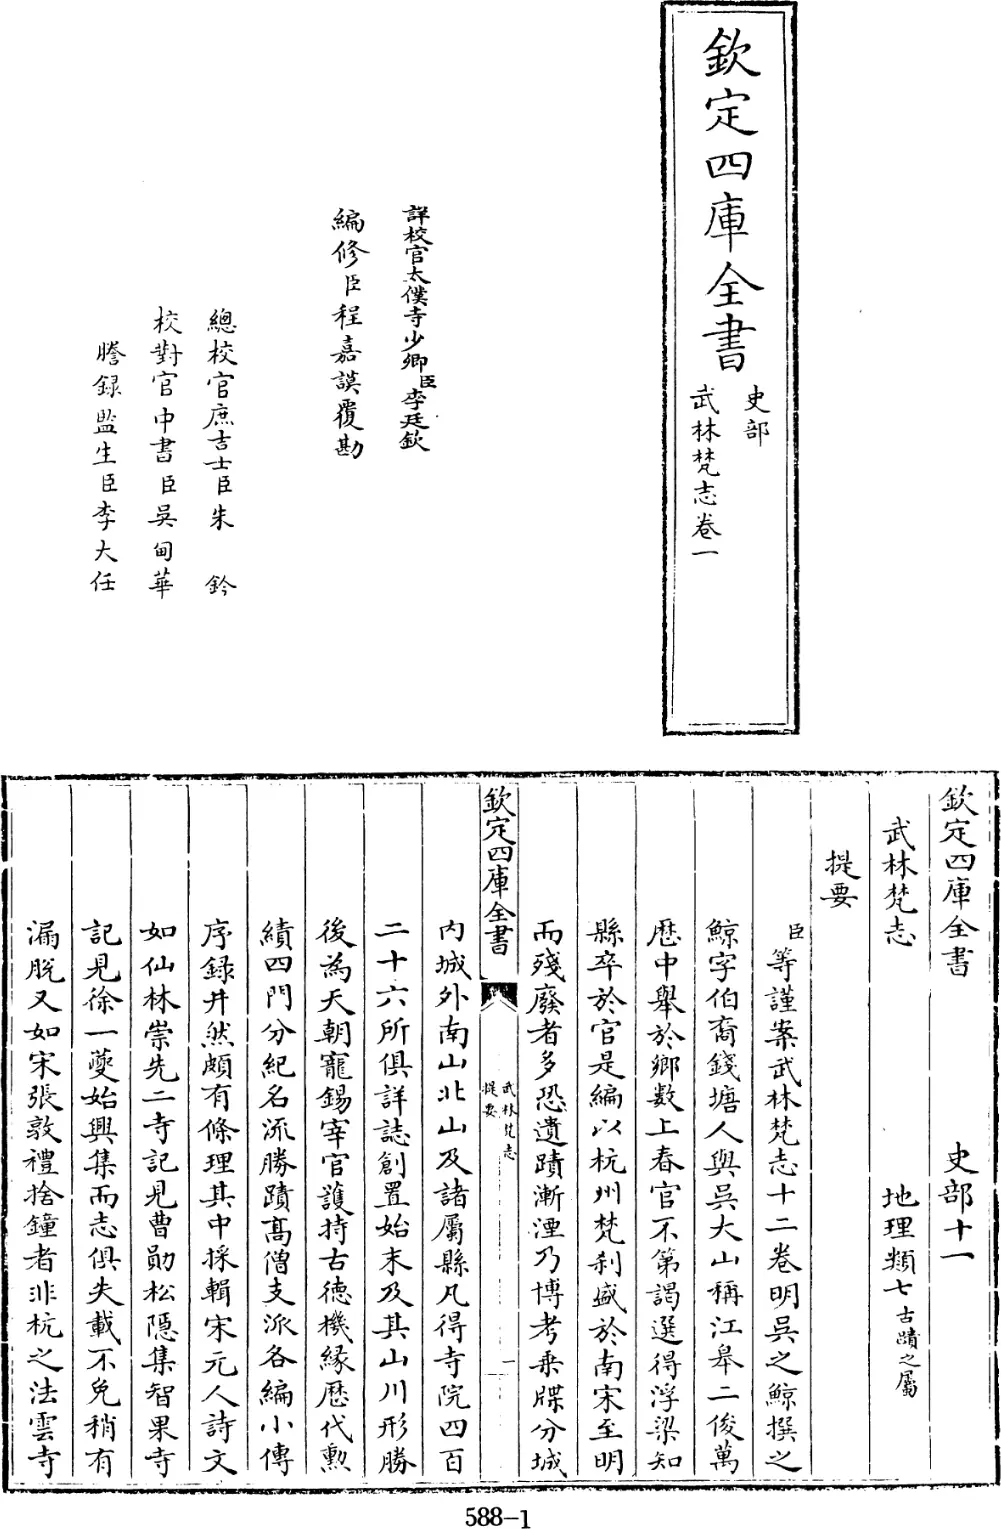 欽定四庫全書
史部
武林梵志卷一
詳校官太僕寺少卿臣李廷欽
編修臣程嘉謨覆勘
總校官庶吉士臣朱鈐
校對官中書臣吳甸華
謄錄監生臣李大任
欽定四庫全書 史部十一
武林梵志 地理類七古蹟之屬
提要
臣等謹案武林梵志十二卷明吳之鯨撰之
鯨字伯裔錢塘人與吳大山稱江臯二俊萬
歴中舉於鄉數上春官不第謁選得浮梁知
縣卒於官是編以杭州梵刹盛於南宋至明
而殘廢者多恐遺蹟漸湮乃博考乗牒分城
欽定四庫全書
武林梵志
提要
一
内城外南山北山及諸屬縣凡得寺院四百
二十六所俱詳誌創置始末及其山川形勝
後為天朝寵錫宰官護持古徳機縁歴代勲
績四門分紀名流勝蹟髙僧支派各編小傳
序録井然頗有條理其中採輯宋元人詩文
如仙林崇先二寺記見曹勛松隠集智果寺
記見徐一䕫始興集而志俱失載不免稍有
漏脱又如宋張敦禮捨鐘者非杭之法雲寺
588-1